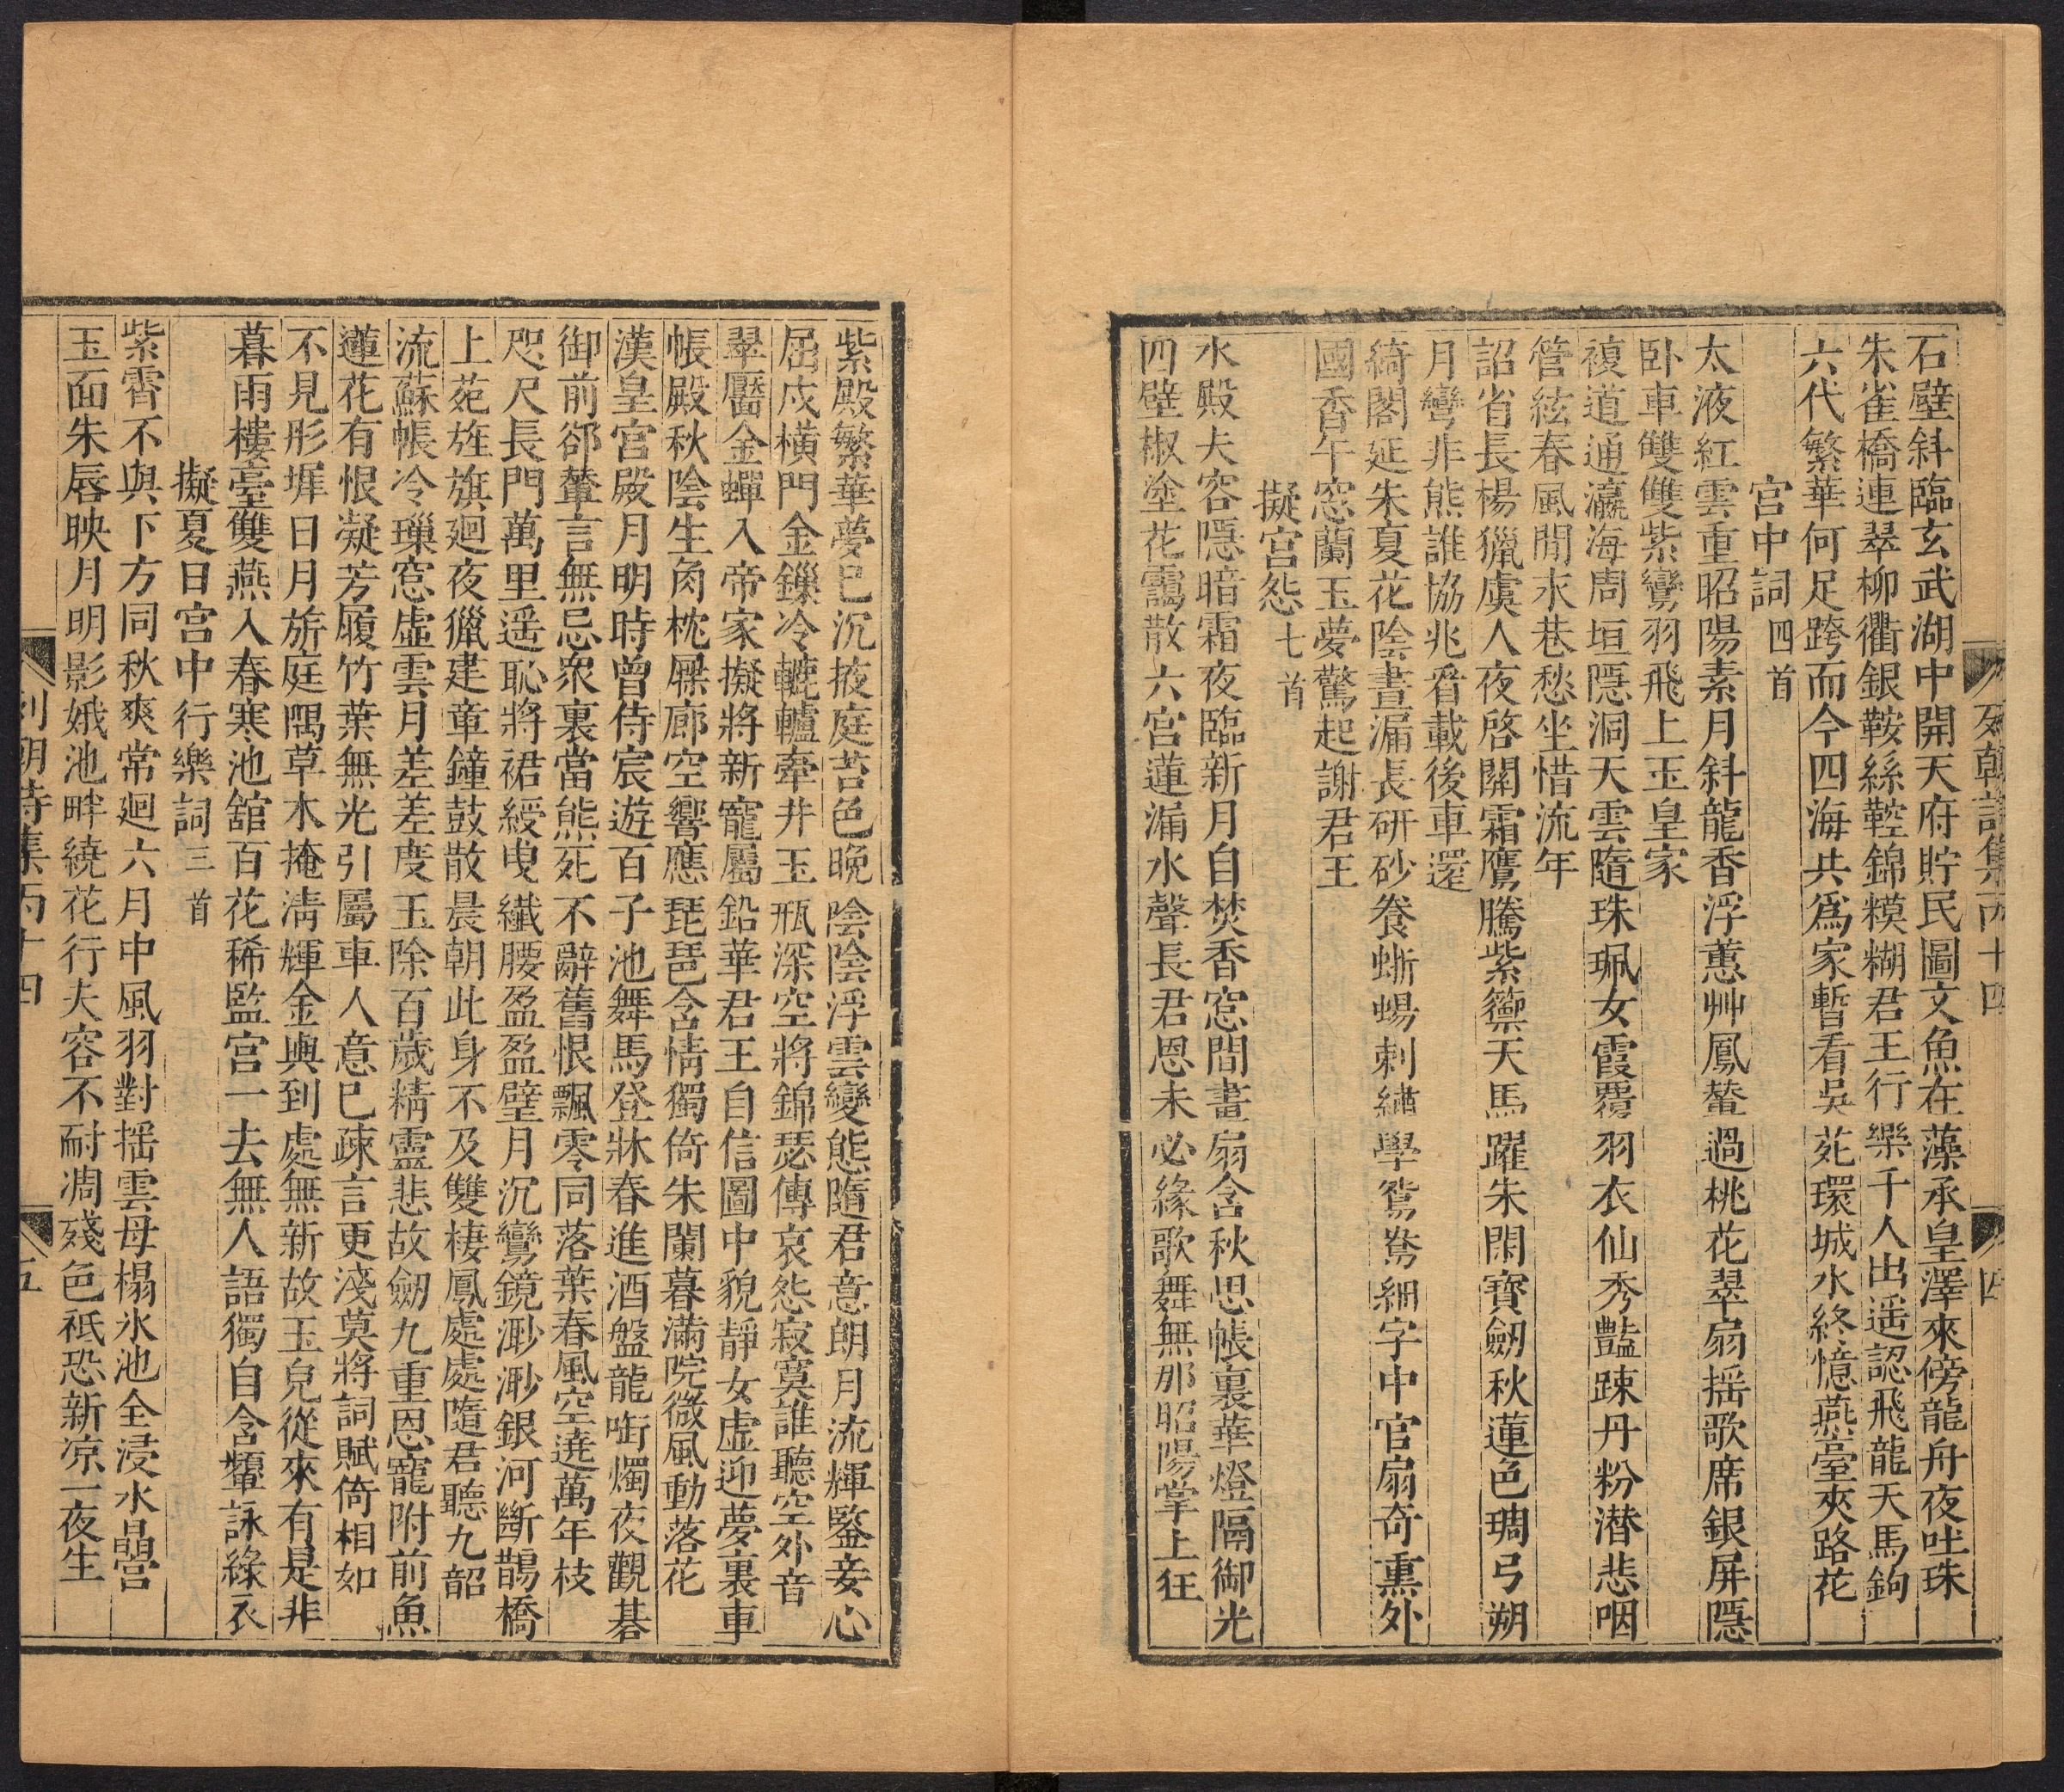 列朝詩集丙十四 四
石壁斜臨玄武湖中開天府貯民圖文魚在藻承皇澤來傍龍舟夜吐珠
朱雀橋連翠柳衢銀鞍絲鞚錦糢糊君王行樂千人出遥認飛龍天馬鉤
六代繁華何足跨而今四海共爲家暫看吳苑環城水終憶燕臺夾路花
宮中詞四首
太液紅雲重昭陽素月斜龍香浮蕙艸鳳輦過桃花翠扇揺歌席銀屏隱
卧車雙雙紫鸞羽飛上玉皇家
複道通瀛海周垣隱洞天雲隨珠珮女霞覆羽衣仙秀豔踈丹粉潜悲咽
管絃春風閒永巷愁坐惜流年
詔省長楊獵虞人夜啓關霜鷹騰紫籞天馬躍朱閑寶劒秋蓮色琱弓朔
月彎非熊誰協兆看載後車還
綺閣延朱夏花陰晝漏長研砂養蜥蜴刺繡學鴛鴦細字中官扇奇熏外
國香午窓蘭玉夢驚起謝君王
擬宮怨七首
水殿夫容隱暗霜夜臨新月自焚香窓間畫扇含秋思帳裏華燈隔御光
四壁椒塗花靄散六宮蓮漏水聲長君恩未必緣歌舞無那昭陽掌上狂
紫殿繁華夢巳沉掖庭苔色晚陰陰浮雲變態隨君意朗月流輝鑒妾心
屈戍橫門金鏁冷轆轤牽井玉瓶深空將錦瑟傳哀怨寂寞誰聽空外音
翠靨金蟬入帝家擬將新寵屬鉛華君王自信圖中貌靜女虛迎夢裏車
帳殿秋陰生角枕屧廊空響應琵琶含情獨倚朱闌暮滿院微風動落花
漢皇宮殿月明時曾侍宸遊百子池舞馬登牀春進酒盤龍啣燭夜觀碁
御前郤輦言無忌衆裏當熊死不辭舊恨飄零同落葉春風空遶萬年枝
咫尺長門萬里遥恥將裙綬曳纖腰盈盈璧月沉鸞鏡渺渺銀河斷鵲橋
上苑旌旗廻夜獵建章鐘鼓散晨朝此身不及雙棲鳳處處隨君聽九韶
流蘇帳冷璅窓虛雲月差差度玉除百歲精靈悲故劒九重恩寵附前魚
蓮花有恨凝芳履竹葉無光引屬車人意巳疎言更淺莫將詞賦倚相如
不見彤墀日月旂庭隅草木掩淸輝金輿到處無新故玉兒從來有是非
暮雨樓臺雙燕入春寒池舘百花稀監宮一去無人語獨自含顰詠綠衣
擬夏日宮中行樂詞三首
紫霄不與下方同秋爽常廻六月中風羽對揺雲母榻氷池全浸水晶宮
玉面朱唇映月明影娥池畔繞花行夫容不耐凋殘色祗恐新凉一夜生
列朝詩集丙十四 五